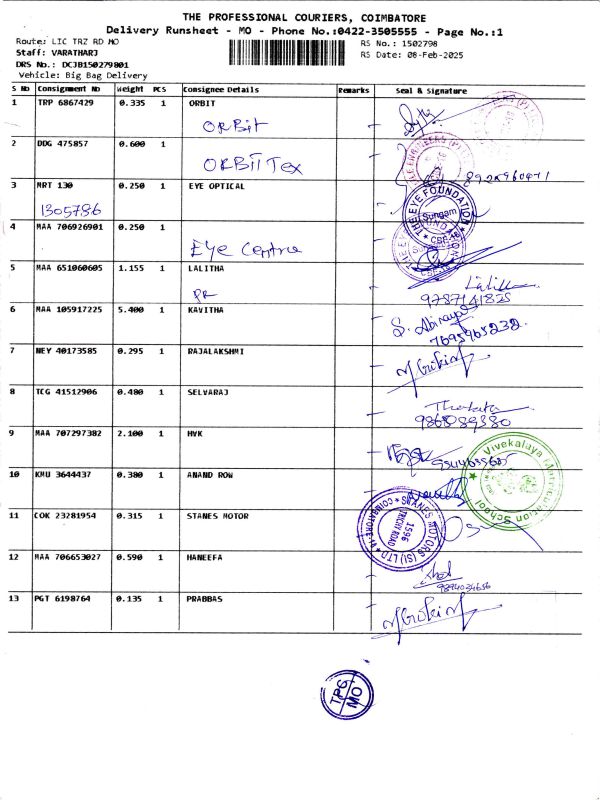 THE PROFESSIONAL COURIERS, COIMBATORE
Delivery Runsheet - MO - Phone No.:0422-3505555 - Page No.:1
Route: LIC TRZ RD MO
RS No.: 1502798
Staff: VARATHARJ
RS Date: 08-Feb-2025
DRS No.: DCJB150279801
Vehicle: Big Bag Delivery
S No Consignment No Weight PCS Consignee Details Remarks Seal & Signature
1 TRP 6867429 0.335 1 ORBIT
ORBit
2 DDG 475857 0.600 1
ORBIT Tex
3 MRT 130 0.250 1 EYE OPTICAL
1305786
THE EYE FOUNDATION
Sungam
CBE-18
4 MAA 706926901 0.250 1
Eye Centre
5 MAA 651060605 1.155 1 LALITHA
PR
9787141825
6 MAA 105917225 5.400 1 KAVITHA
7695965232
7 NEY 40173585 0.295 1 RAJALAKSHMI
8 TCG 41512906 0.480 1 SELVARAJ
9 MAA 707297382 2.100 1 HVK
Vivekalaya Matriculation School
10 KMU 3644437 0.380 1 ANAND ROW
11 COK 23281954 0.315 1 STANES MOTOR
STANES MOTORS (SI) LTD
1596
TRICHY ROAD
12 MAA 706653027 0.590 1 HANEEFA
9894034656
13 PGT 6198764 0.135 1 PRABBAS
TPC
MO